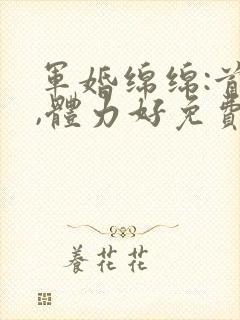 軍婚綿綿:首
,體力好免費
養花花